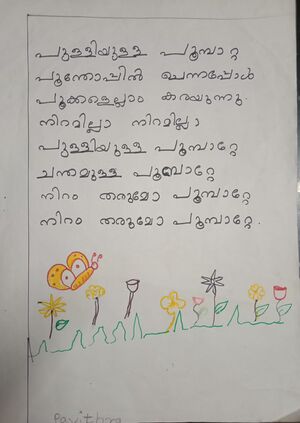 പുള്ളിയുള്ള പൂമ്പാറ്റ
പൂന്തോപ്പിൽ ചെന്നപ്പോൾ
പൂക്കളെല്ലാം കരയുന്നു.
നിറമില്ലാ നിറമില്ലാ
പുള്ളിയുള്ള പൂമ്പാറ്റേ
ചന്തമുള്ള പൂമ്പാറ്റേ
നിറം തരുമോ പൂമ്പാറ്റേ
നിറം തരുമോ പൂമ്പാറ്റേ.
Pavithra